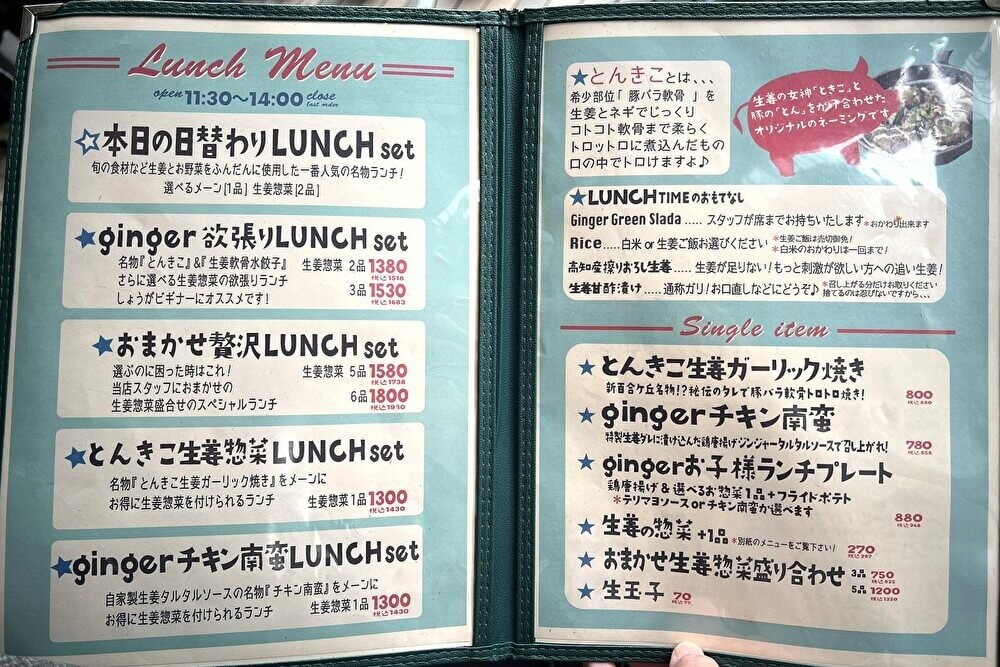 Lunch Menu
open 11:30〜14:00 close last order
☆本日の日替わりLUNCH set
旬の食材など生姜とお野菜をふんだんに使用した一番人気の名物ランチ!
選べるメーン[1品] 生姜惣菜[2品]
★ginger 欲張りLUNCH set
名物『とんきこ』&『生姜軟骨水餃子』 生姜惣菜 2品 1380
税込1518
さらに選べる生姜惣菜の欲張りランチ
しょうがビギナーにオススメです! 3品 1530
税込1683
★おまかせ贅沢LUNCH set
選ぶのに困った時はこれ! 生姜惣菜 5品 1580
税込1738
当店スタッフにおまかせの
生姜惣菜盛合せのスペシャルランチ 6品 1800
★とんきこ生姜惣菜LUNCH set
名物『とんきこ生姜ガーリック焼き』をメーンに
お得に生姜惣菜を付けられるランチ 生姜惣菜1品 1300
税込1430
★gingerチキン南蛮LUNCH set
自家製生姜タルタルソースの名物『チキン南蛮』をメーンに
お得に生姜惣菜を付けられるランチ 生姜惣菜1品 1300
税込1430
★とんきことは、、、
希少部位「豚バラ軟骨」を
生姜とネギでじっくり
コトコト軟骨まで柔らく
トロットロに煮込んだもの
口の中でトロけますよ♪
生姜の女神「ときこ」と
豚の「とん」をかけ合わせた
オリジナルのネーミングです
★LUNCH TIMEのおもてなし
Ginger Green Slada ..... スタッフが席までお持ちいたします *おかわり出来ます
Rice ..... 白米 or 生姜ご飯お選びください *生姜ご飯は売切御免!
*白米のおかわりは一回まで!
高知産採りおろし生姜 ..... 生姜が足りない!もっと刺激が欲しい方への追い生姜!
生姜甘酢漬け ..... 通称ガリ!お口直しなどにどうぞ♪ *召し上がる分だけお取りください
捨てるのは忍びないですから、、、
Single item
★とんきこ生姜ガーリック焼き
新百合ケ丘名物!?秘伝のタレで豚バラ軟骨トロトロ焼き! 800
税込880
★gingerチキン南蛮
特製生姜ダレに漬け込んだ鶏唐揚げジンジャータルタルソースで召し上がれ! 780
税込858
★gingerお子様ランチプレート
鶏唐揚げ&選べるお惣菜1品+フライドポテト
*テリマヨソース or チキン南蛮が選べます 880
税込968
★生姜の惣菜 +1品 *別紙のメニューをご覧下さい! 270
税込297
★おまかせ生姜惣菜盛り合わせ 3品 750
税込825
5品 1200
税込1320
★生玉子 70
税込77